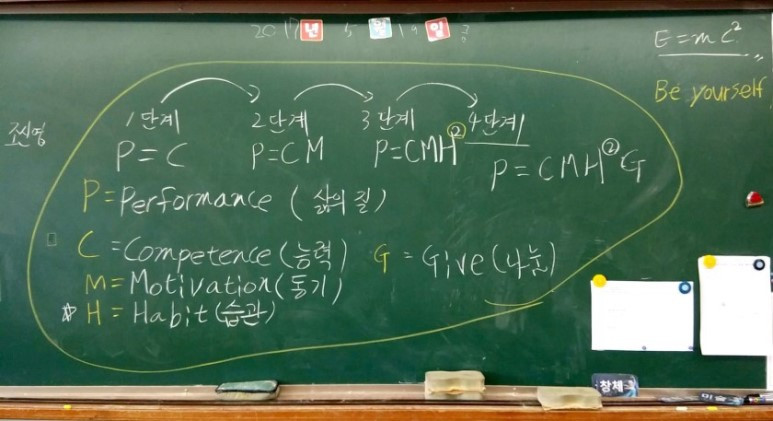 2017년 5월 19일
E=mc²
Be yourself
조신영
1단계 2단계 3단계 4단계
P=C P=CM P=CMH② P=CMH②G
P=Performance (삶의 질)
C=Competence (능력) G=Give (나눔)
M=Motivation (동기)
☆H=Habit (습관)
창체
미술